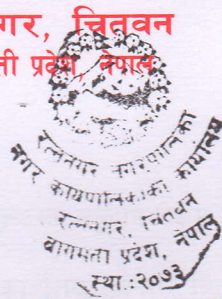 गर, चितवन
ती प्रदेश, नेपाल
रत्ननगर नगरपालिका
नगर कार्यपालिकाको कार्यालय
रत्ननगर, चितवन
बागमती प्रदेश, नेपाल
स्था.:२०७३